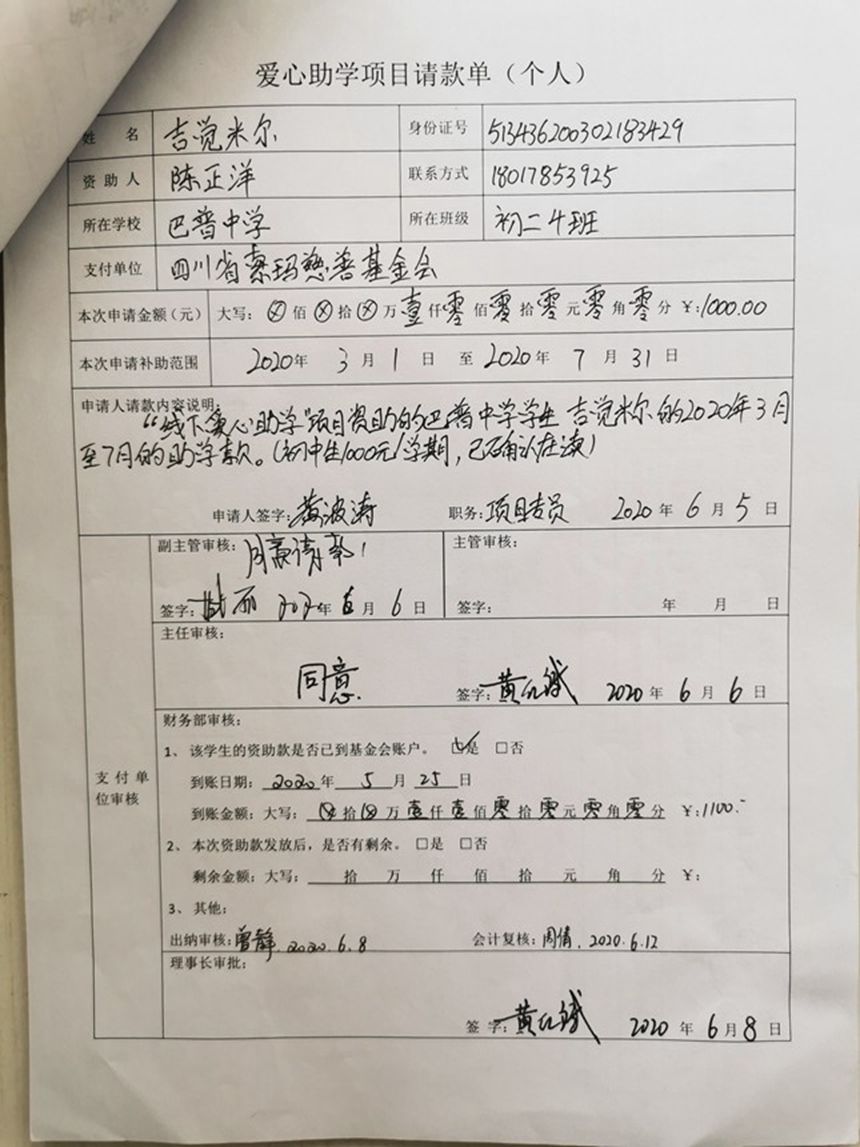 爱心助学项目请款单（个人）
姓 名 吉觉米尔 身份证号 513436200302183429
资助人 陈正洋 联系方式 18017853925
所在学校 巴普中学 所在班级 初二4班
支付单位 四川省索玛慈善基金会
本次申请金额（元） 大写：⊗佰⊗拾⊗万壹仟零佰零拾零元零角零分 ￥:1000.00
本次申请补助范围 2020年 3月1日 至2020年 7月31日
申请人请款内容说明：
“线下爱心助学”项目资助的巴普中学学生 吉觉米尔的2020年3月
至7月的助学款。（初中生1000元/学期，已确认在读）
申请人签字：黄波涛 职务：项目专员 2020年6月5日
副主管审核： 主管审核：
签字： 年6月6日 签字： 年 月 日
主任审核：
同意 签字：黄红斌 2020年6月6日
财务部审核：
支付单位审核
1、该学生的资助款是否已到基金会账户。 ☑是 □否
到账日期：2020年 5月25日
到账金额：大写：⊗拾⊗万壹仟壹佰零拾零元零角零分 ￥:1100.-
2、本次资助款发放后，是否有剩余。□是 □否
剩余金额：大写： 拾 万 仟 佰 拾 元 角 分 ￥:
3、其他：
出纳审核：曾静.2020.6.8 会计复核：周倩.2020.6.12
理事长审批：
签字：黄红斌 2020年6月8日